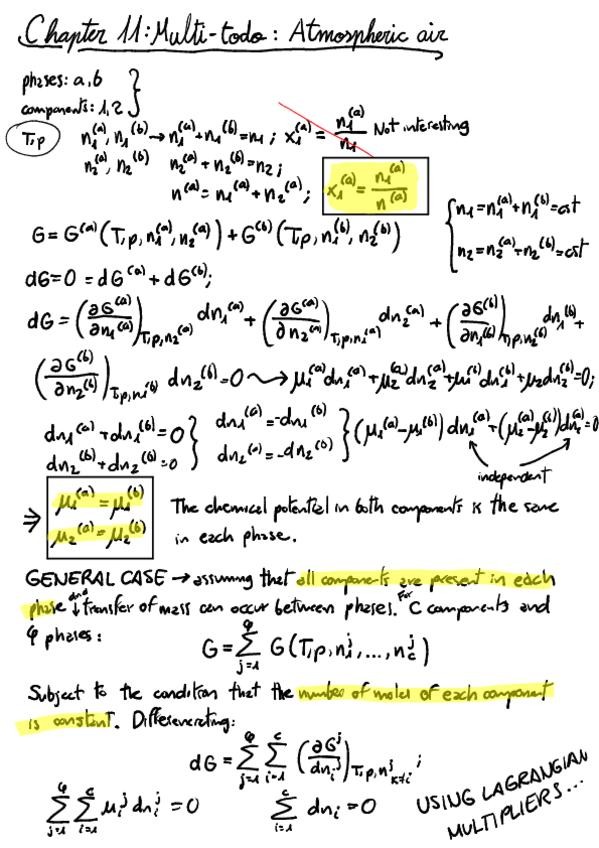 Chapter 11: Multi-todo: Atmospheric air
phases: a, b
components: 1, 2
T, p n₁⁽ᵃ⁾, n₁⁽ᵇ⁾ → n₁⁽ᵃ⁾ + n₁⁽ᵇ⁾ = n₁ ; x₁⁽ᵃ⁾ = n₁⁽ᵃ⁾/n₁ Not interesting
n₂⁽ᵃ⁾, n₂⁽ᵇ⁾ n₂⁽ᵃ⁾ + n₂⁽ᵇ⁾ = n₂ ;
n⁽ᵃ⁾ = n₁⁽ᵃ⁾ + n₂⁽ᵃ⁾ ; x₁⁽ᵃ⁾ = n₁⁽ᵃ⁾/n⁽ᵃ⁾
n₁ = n₁⁽ᵃ⁾ + n₁⁽ᵇ⁾ = cst
n₂ = n₂⁽ᵃ⁾ + n₂⁽ᵇ⁾ = cst
G = G⁽ᵃ⁾(T, p, n₁⁽ᵃ⁾, n₂⁽ᵃ⁾) + G⁽ᵇ⁾(T, p, n₁⁽ᵇ⁾, n₂⁽ᵇ⁾)
dG = 0 = dG⁽ᵃ⁾ + dG⁽ᵇ⁾ ;
dG = (∂G⁽ᵃ⁾/∂n₁⁽ᵃ⁾)_T,p,n₂⁽ᵃ⁾ dn₁⁽ᵃ⁾ + (∂G⁽ᵃ⁾/∂n₂⁽ᵃ⁾)_T,p,n₁⁽ᵃ⁾ dn₂⁽ᵃ⁾ + (∂G⁽ᵇ⁾/∂n₁⁽ᵇ⁾)_T,p,n₂⁽ᵇ⁾ dn₁⁽ᵇ⁾ +
(∂G⁽ᵇ⁾/∂n₂⁽ᵇ⁾)_T,p,n₁⁽ᵇ⁾ dn₂⁽ᵇ⁾ = 0 ⇝ μ₁⁽ᵃ⁾dn₁⁽ᵃ⁾ + μ₂⁽ᵃ⁾dn₂⁽ᵃ⁾ + μ₁⁽ᵇ⁾dn₁⁽ᵇ⁾ + μ₂dn₂⁽ᵇ⁾ = 0;
dn₁⁽ᵃ⁾ + dn₁⁽ᵇ⁾ = 0 } dn₁⁽ᵃ⁾ = -dn₁⁽ᵇ⁾ } (μ₁⁽ᵃ⁾ - μ₁⁽ᵇ⁾) dn₁⁽ᵃ⁾ + (μ₂⁽ᵃ⁾ - μ₂⁽ᵇ⁾) dn₂⁽ᵃ⁾ = 0
dn₂⁽ᵇ⁾ + dn₂⁽ᵇ⁾ = 0 } dn₂⁽ᵃ⁾ = -dn₂⁽ᵇ⁾
independent
⇒ μ₁⁽ᵃ⁾ = μ₁⁽ᵇ⁾ The chemical potential in both components is the same
μ₂⁽ᵃ⁾ = μ₂⁽ᵇ⁾ in each phase.
GENERAL CASE → assuming that all components are present in each
phase and transfer of mass can occur between phases. For C components and
φ phases: G = Σ_{j=1}^{φ} G(T, p, n₁ʲ, ..., n_cʲ)
Subject to the condition that the number of moles of each component
is constant. Differenerting:
dG = Σ_{j=1}^{φ} Σ_{i=1}^{c} (∂Gʲ/dnᵢʲ)_T,p,nʲ_k≠i ;
Σ_{j=1}^{φ} Σ_{i=1}^{c} μᵢʲ dnᵢʲ = 0 Σ_{i=1}^{c} dnᵢ = 0 USING LAGRANGIAN
MULTIPLIERS...